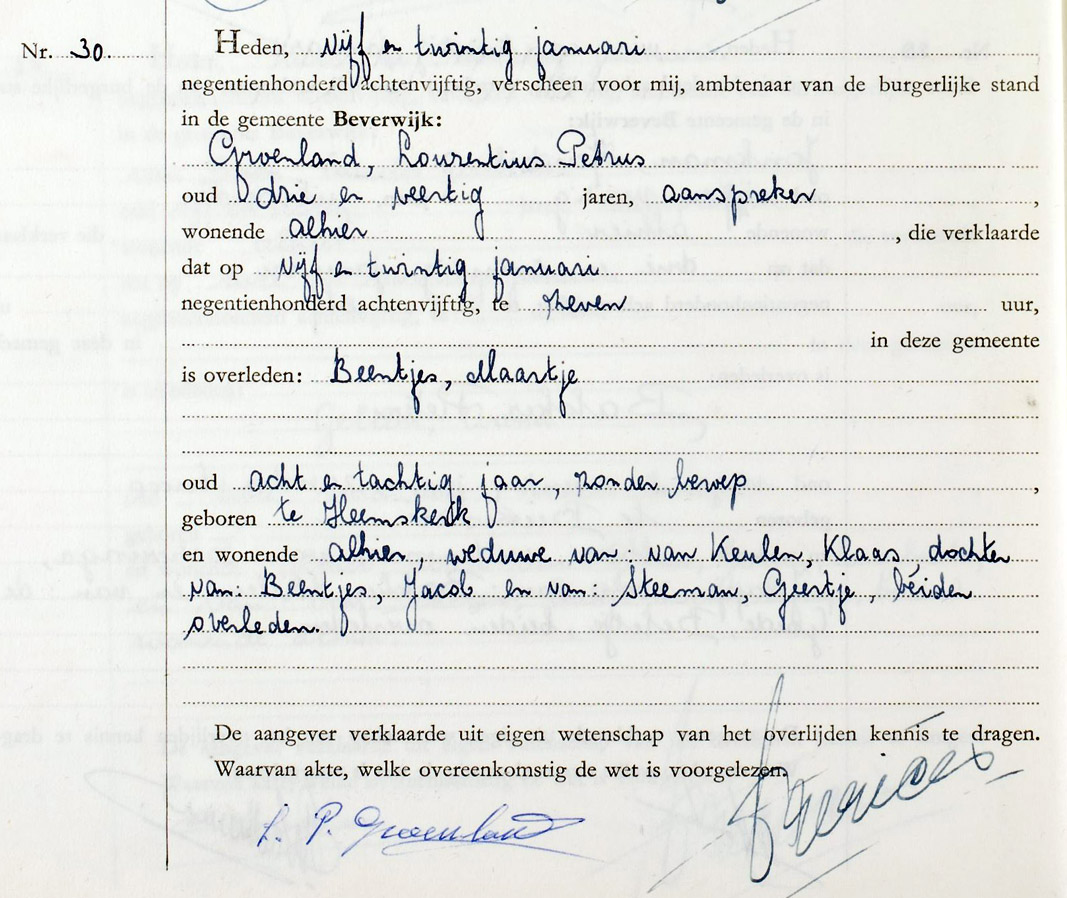 Nr. 30
Heden, vijf en twintig januari
negentienhonderd achtenvijftig, verscheen voor mij, ambtenaar van de burgerlijke stand
in de gemeente Beverwijk:
Groenland, Laurentius Petrus
oud drie en veertig jaren, aanspreker,
wonende alhier, die verklaarde
dat op vijf en twintig januari
negentienhonderd achtenvijftig, te zeven uur,
in deze gemeente
is overleden: Beentjes, Maartje
oud acht en tachtig jaar, zonder beroep,
geboren te Heemskerk
en wonende alhier, weduwe van: van Keulen, Klaas dochter
van: Beentjes Jacob en van: Steeman, Geertje, beiden
overleden.
De aangever verklaarde uit eigen wetenschap van het overlijden kennis te dragen.
Waarvan akte, welke overeenkomstig de wet is voorgelezen.
L. P. Groenland